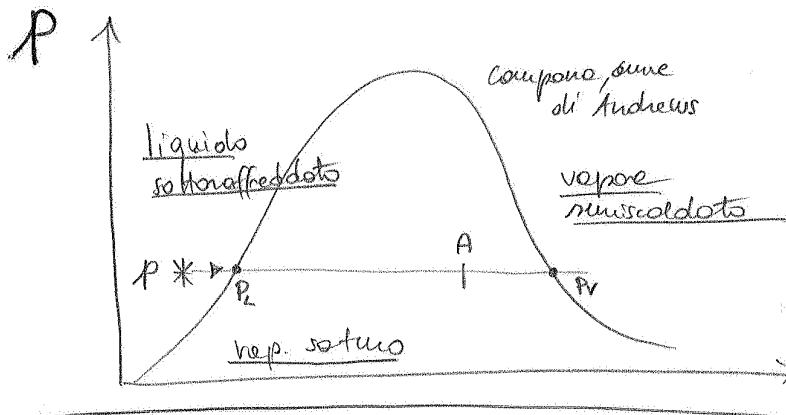 P
campana, curve
di Andrews
liquido
sottoraffreddato
vapore
surriscaldato
A
p *
PL
PV
vap. saturo